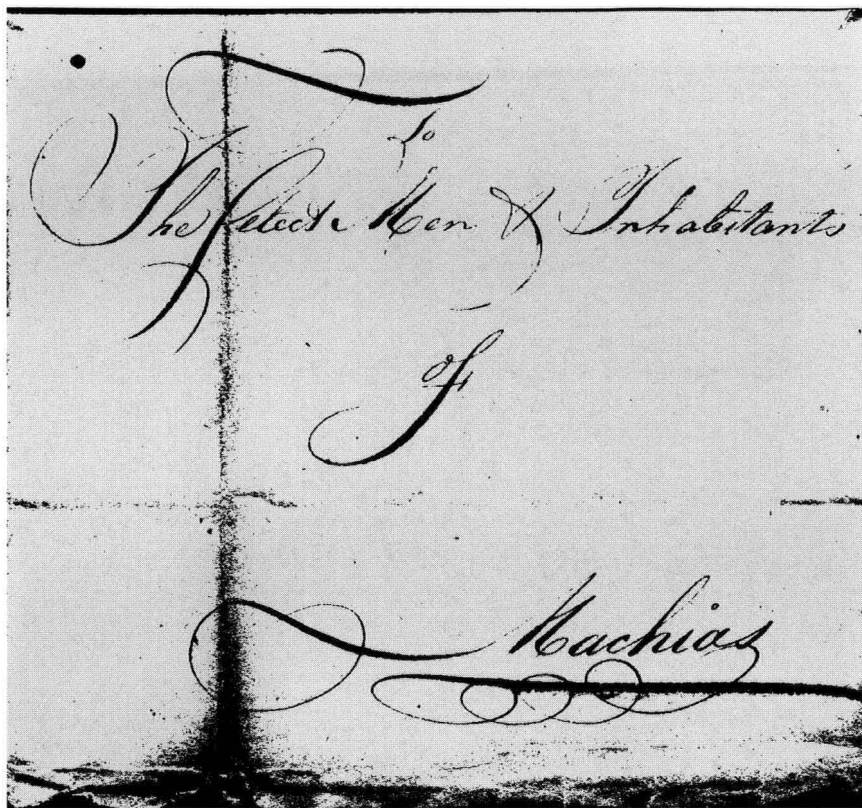 To
The Select Men & Inhabitants
of
Machias